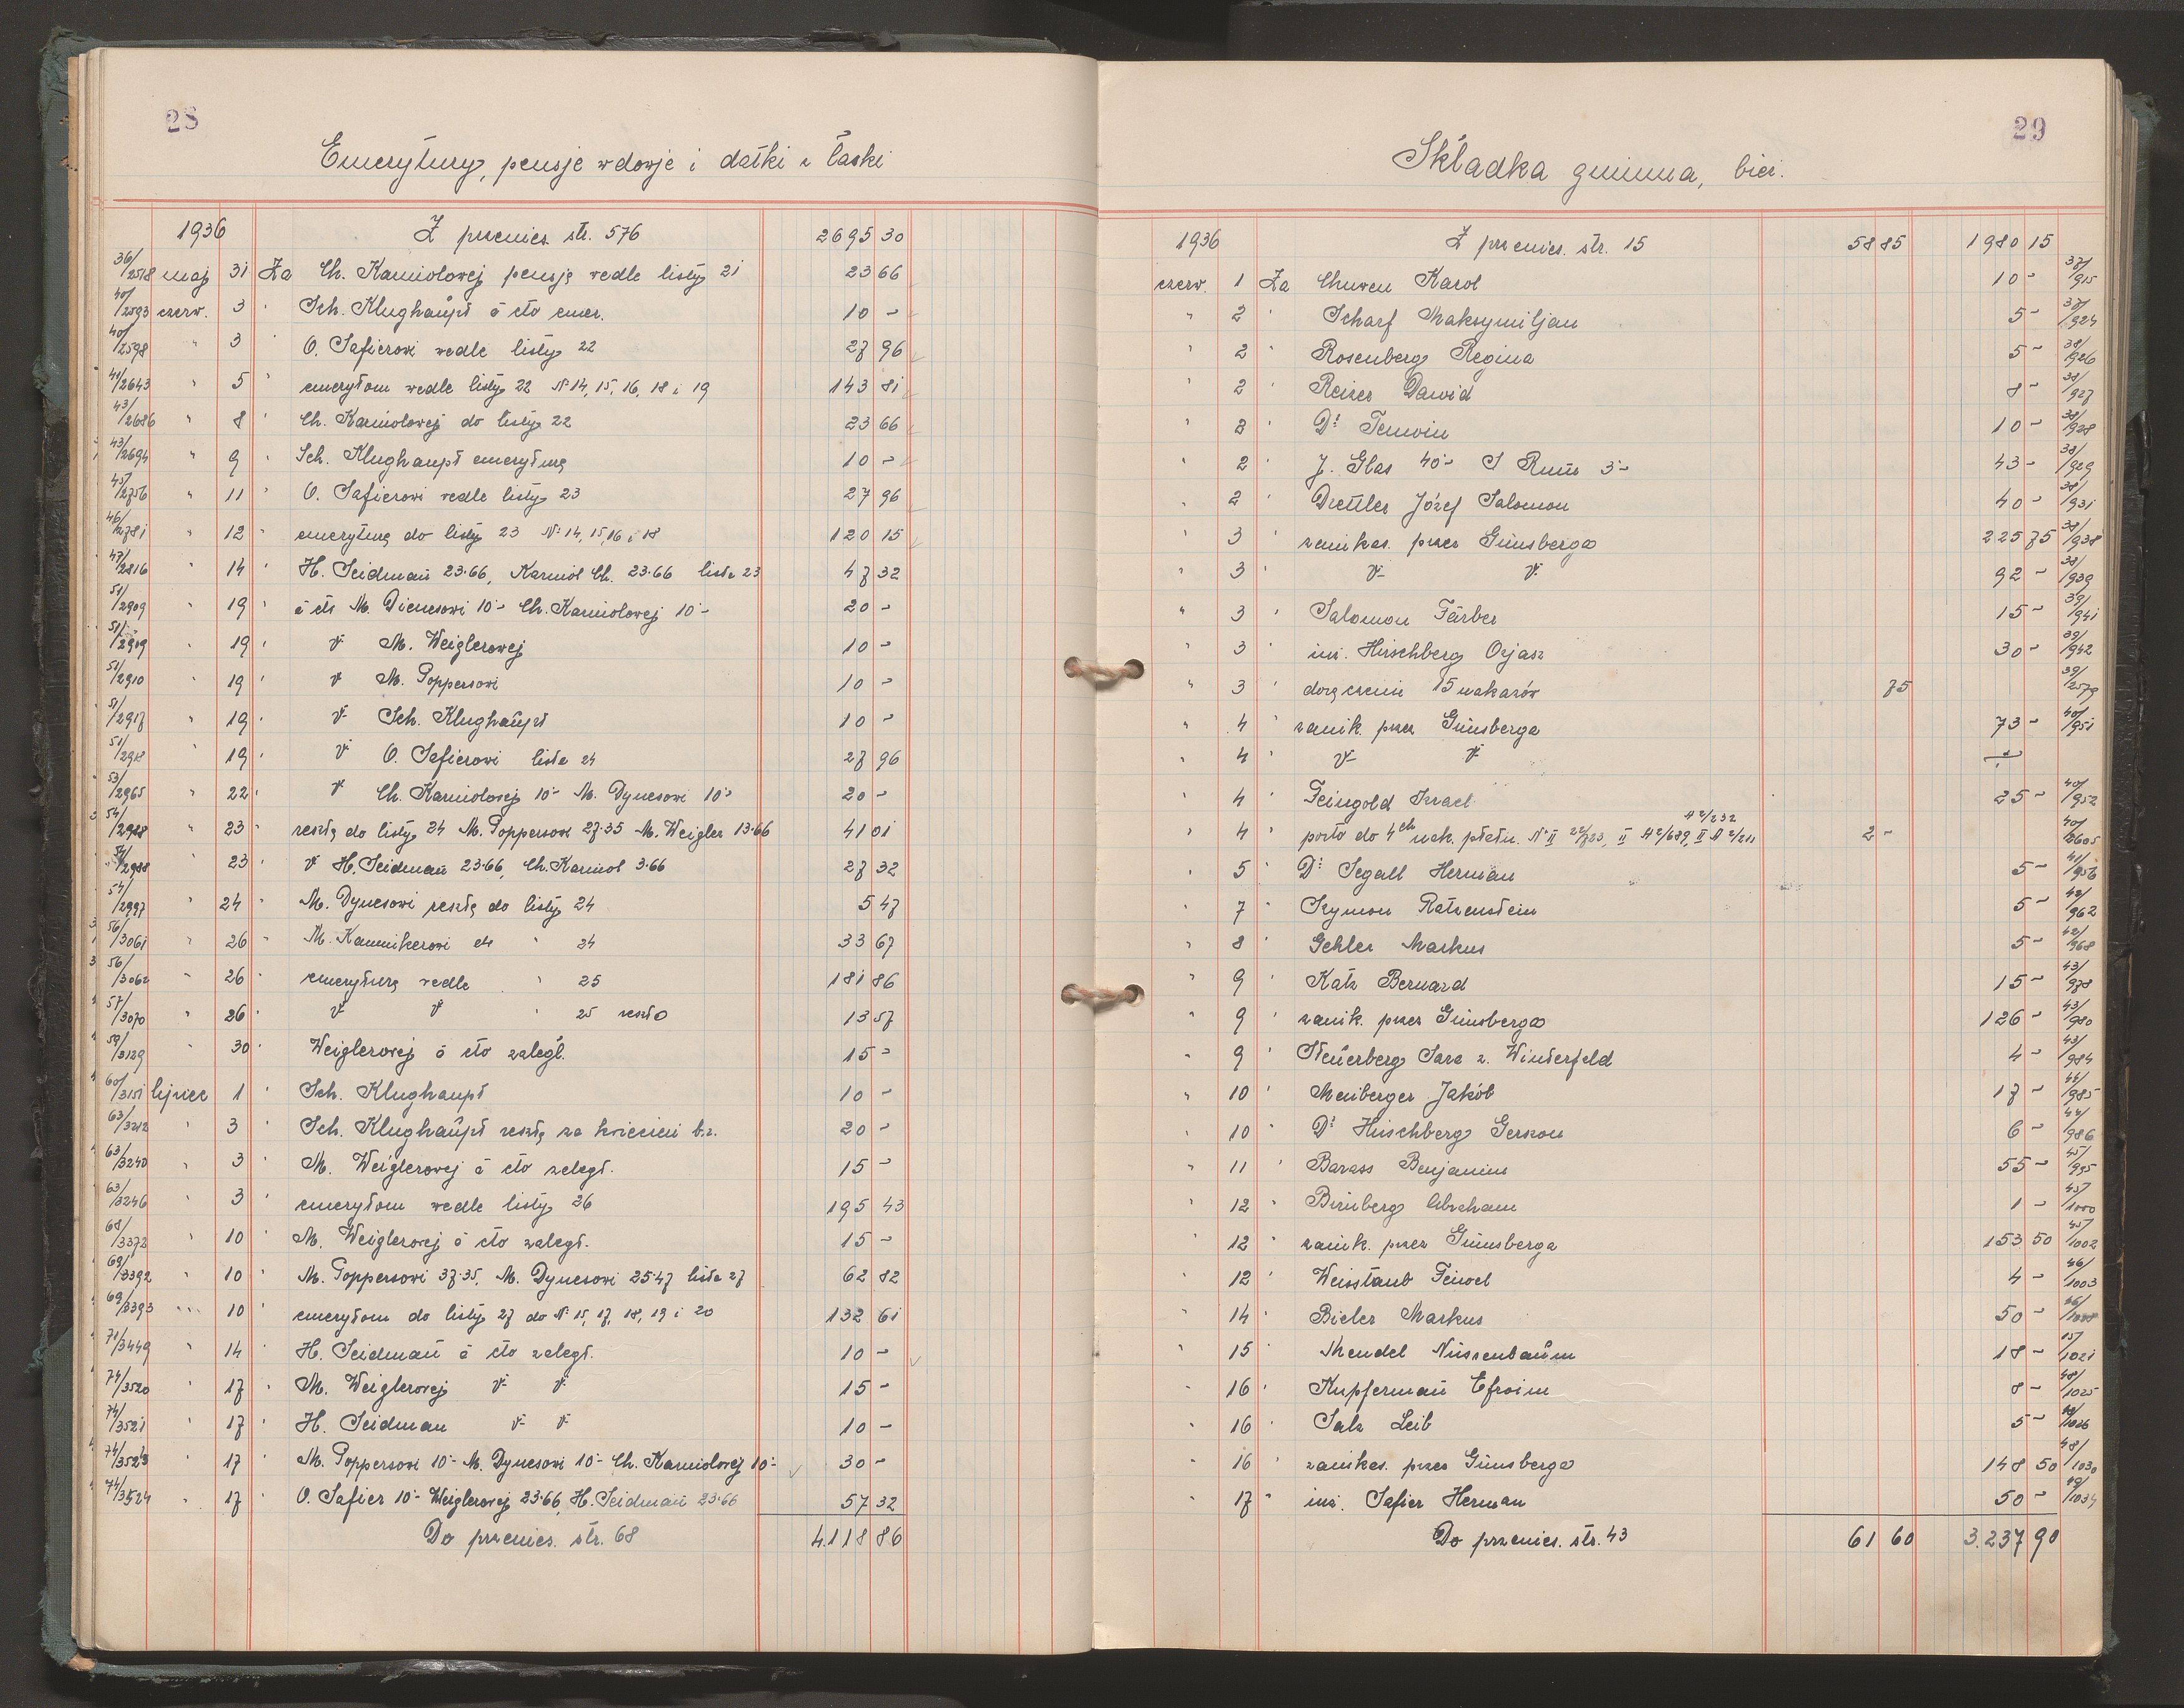 28
Emerytury, pensje wdowie i datki z łaski
1936 Z przenies. str. 576 2695 30
36/2518 maj 31 Za Ch. Karniolowej pensję wedle listy 21 23 66
40/2593 czerw. 3 " Sch. Klughaupt á cto emer. 10 -
40/2598 " 3 " O. Safierowi wedle listy 22 27 96
41/2643 " 5 " emerytom wedle listy 22 № 14, 15, 16, 18 i 19 143 81
43/2686 " 8 " Ch. Karniolowej do listy 22 23 66
43/2694 " 9 " Sch. Klughaupt emeryturę 10 -
45/2756 " 11 " O. Safierowi wedle listy 23 27 96
46/2781 " 12 " emeryturę do listy 23 № 14, 15, 16 i 18 120 15
47/2816 " 14 " H. Seidman 23·66, Karniol Ch. 23·66 lista 23 47 32
51/2909 " 19 " á cto M. Dienesowi 10·- Ch. Karniolowej 10·- 20 -
51/2909 " 19 " " M. Weiglerowej 10 -
51/2910 " 19 " " M. Poppersowi 10 -
51/2917 " 19 " " Sch. Klughaupt 10 -
51/2918 " 19 " " O. Safierowi lista 24 27 96
53/2965 " 22 " " Ch. Karniolowej 10·- M. Dynesowi 10·- 20 -
54/2988 " 23 " resztę do listy 24 M. Poppersowi 27·35 M. Weigler 13·66 41 01
54/2988 " 23 " H. Seidman 23·66, Ch. Karniol 3·66 27 32
54/2997 " 24 " M. Dynesowi resztę do listy 24 5 47
56/3061 " 26 " M. Kannikerowi " 24 33 67
56/3062 " 26 " emeryturę wedle " 25 181 86
57/3070 " 26 " " " " 25 reszta 13 57
59/3129 " 30 " Weiglerowej á cto zaległ. 15 -
60/3151 lipiec 1 " Sch. Klughaupt 10 -
63/3212 " 3 " Sch. Klughaupt resztę za kwiecień b.r. 20 -
63/3240 " 3 " M. Weiglerowej á cto zaległ. 15 -
63/3246 " 3 " emerytom wedle listy 26 195 43
68/3372 " 10 " M. Weiglerowej á cto zaległ. 15 -
69/3392 " 10 " M. Poppersowi 37·35, M. Dynesowi 25·47 lista 27 62 82
69/3393 " 10 " emerytom do listy 27 do № 15, 17, 18, 19 i 20 132 61
71/3449 " 14 " H. Seidman á cto zaległ. 10 -
74/3520 " 17 " M. Weiglerowej " " 15 -
74/3521 " 17 " H. Seidman " " 10 -
74/3523 " 17 " M. Poppersowi 10·- M. Dynesowi 10·- Ch. Karniolowej 10·- 30 -
74/3524 " 17 " O. Safier 10·- Weiglerowej 23·66, H. Seidman 23·66 57 32
Do przenies. str. 68 4.118 86
29
Składka gminna, bież.
1936 Z przenies. str. 15 58 85 1980 15
czerw. 1 Za Chuwen Karol 10 - 37/915
" 2 " Scharf Maksymiljan 5 - 37/924
" 2 " Rosenberg Regina 5 - 38/926
" 2 " Reizes Dawid 8 - 38/927
" 2 " Dr. Tenwin 10 - 38/928
" 2 " J. Glas 40·- S Rum 3·- 43 - 38/929
" 2 " Drettler Józef Salomon 40 - 38/931
" 3 " zainkas. przez Günsberga 225 75 38/938
" 3 " " " 92 - 38/939
" 3 " Salomon Färber 15 - 39/941
" 3 " inż. Hirschberg Ozjasz 30 - 39/942
" 3 " doręczenie 15 nakazów 75 39/2579
" 4 " zaink. przez Günsberga 73 - 40/951
" 4 " " "
" 4 " Feingold Izrael 25 - 40/952
" 4 " porto do 4ch nak. płatn. № II 22/723, II A2/689, II A 2/211 A2/232 2 - 40/2605
" 5 " Dr. Segall Herman 5 - 41/956
" 7 " Szymon Ratzenstein 5 - 42/962
" 8 " Gehler Markus 5 - 42/968
" 9 " Katz Bernard 15 - 43/978
" 9 " zaink. przez Günsberga 126 - 43/980
" 9 " Steuerberg Sara z. Winterfeld 4 - 43/984
" 10 " Meiberger Jakób 17 - 44/985
" 10 " Dr. Hirschberg Gerszon 6 - 44/986
" 11 " Barass Benjamin 55 - 45/995
" 12 " Birnberg Abraham 1 - 45/1000
" 12 " zaink. przez Günsberga 153 50 45/1002
" 12 " Weisstaub Feiwel 4 - 46/1003
" 14 " Bieler Markus 50 -
" 15 " Mendel Nussenbaum 18 - 1021
" 16 " Kupferman Efroim 8 - 48/1025
" 16 " Salz Leib 5 - 48/1026
" 16 " zainkas. przez Günsberga 148 50 48/1030
" 17 " inż. Safier Herman 50 - 49/1034
Do przenies. str. 43 61 60 3.237 90